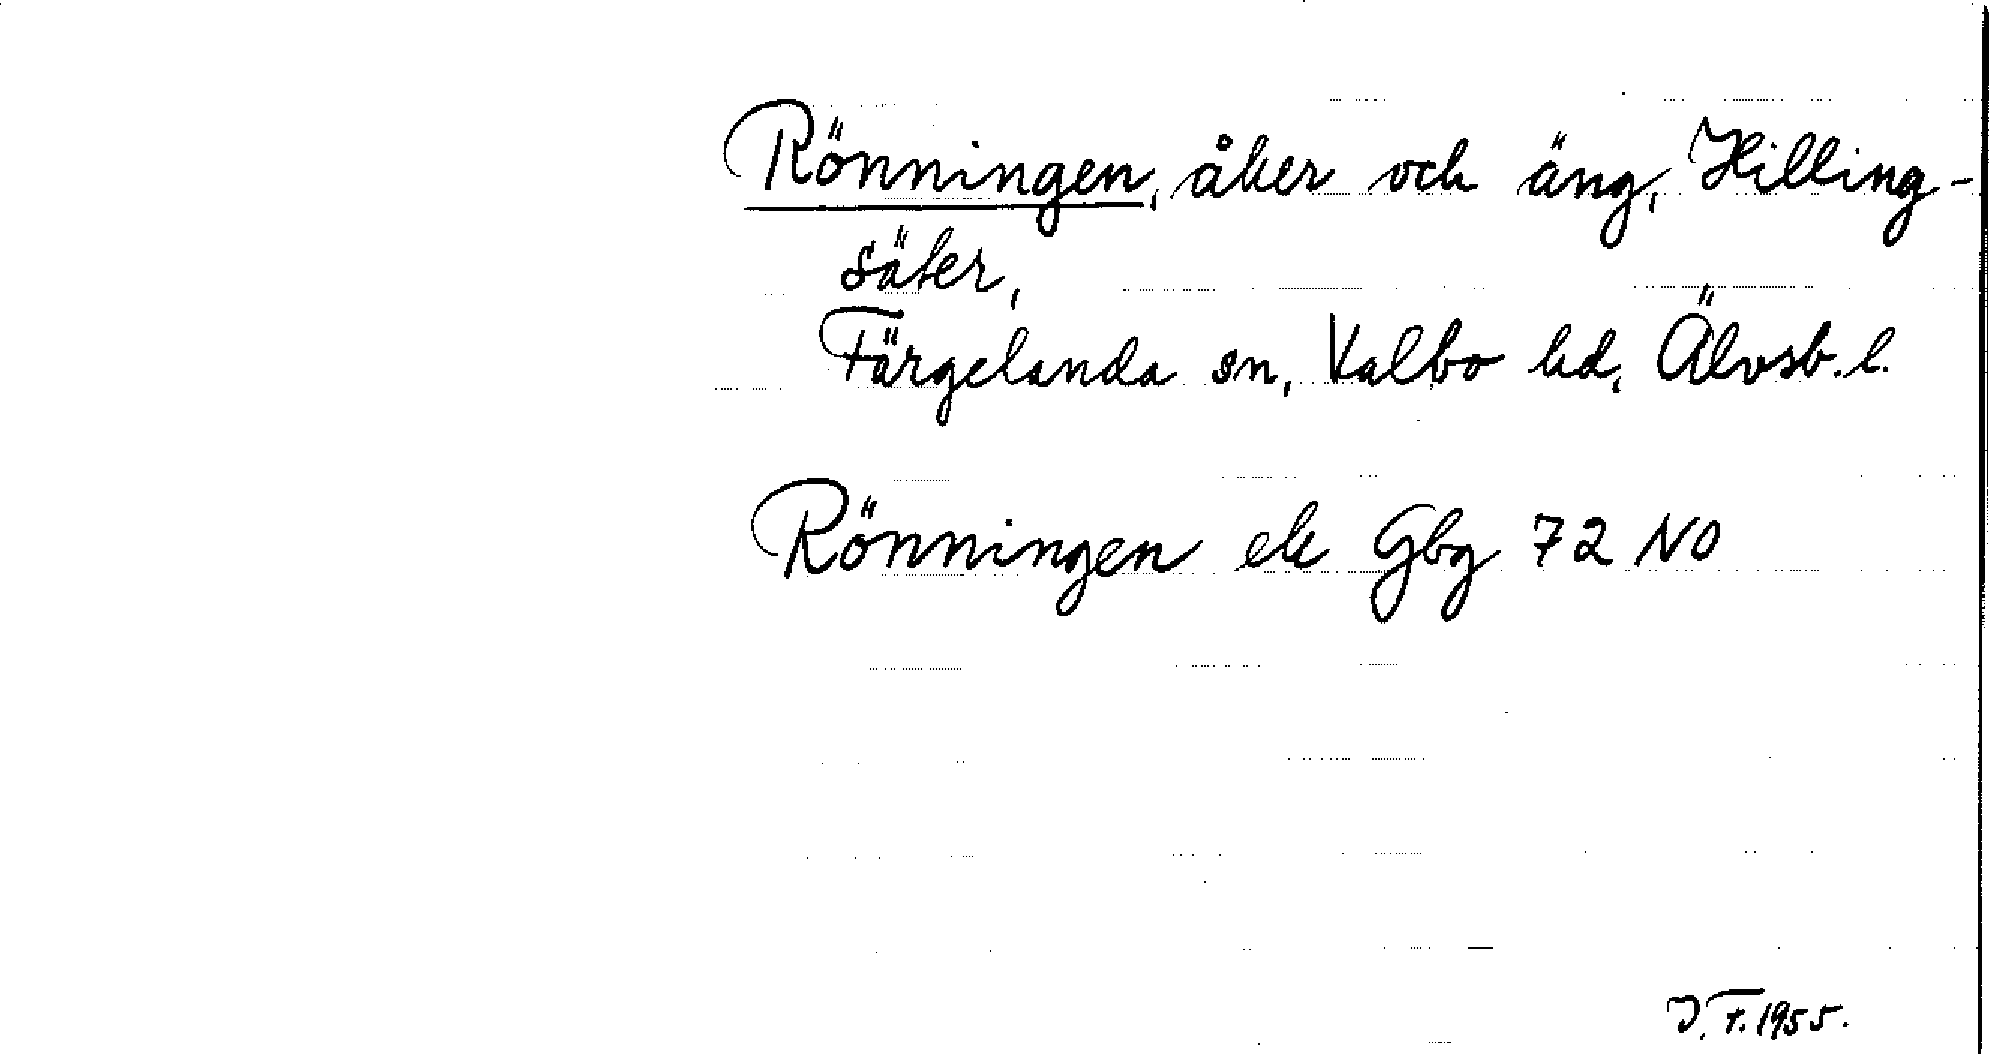 Rönningen, åker och äng, Hilling-
säter,
Färgelanda sn, Valbo hd, Älvsb. l.
Rönningen ek Gbg 72 NO
J. F. 1955.